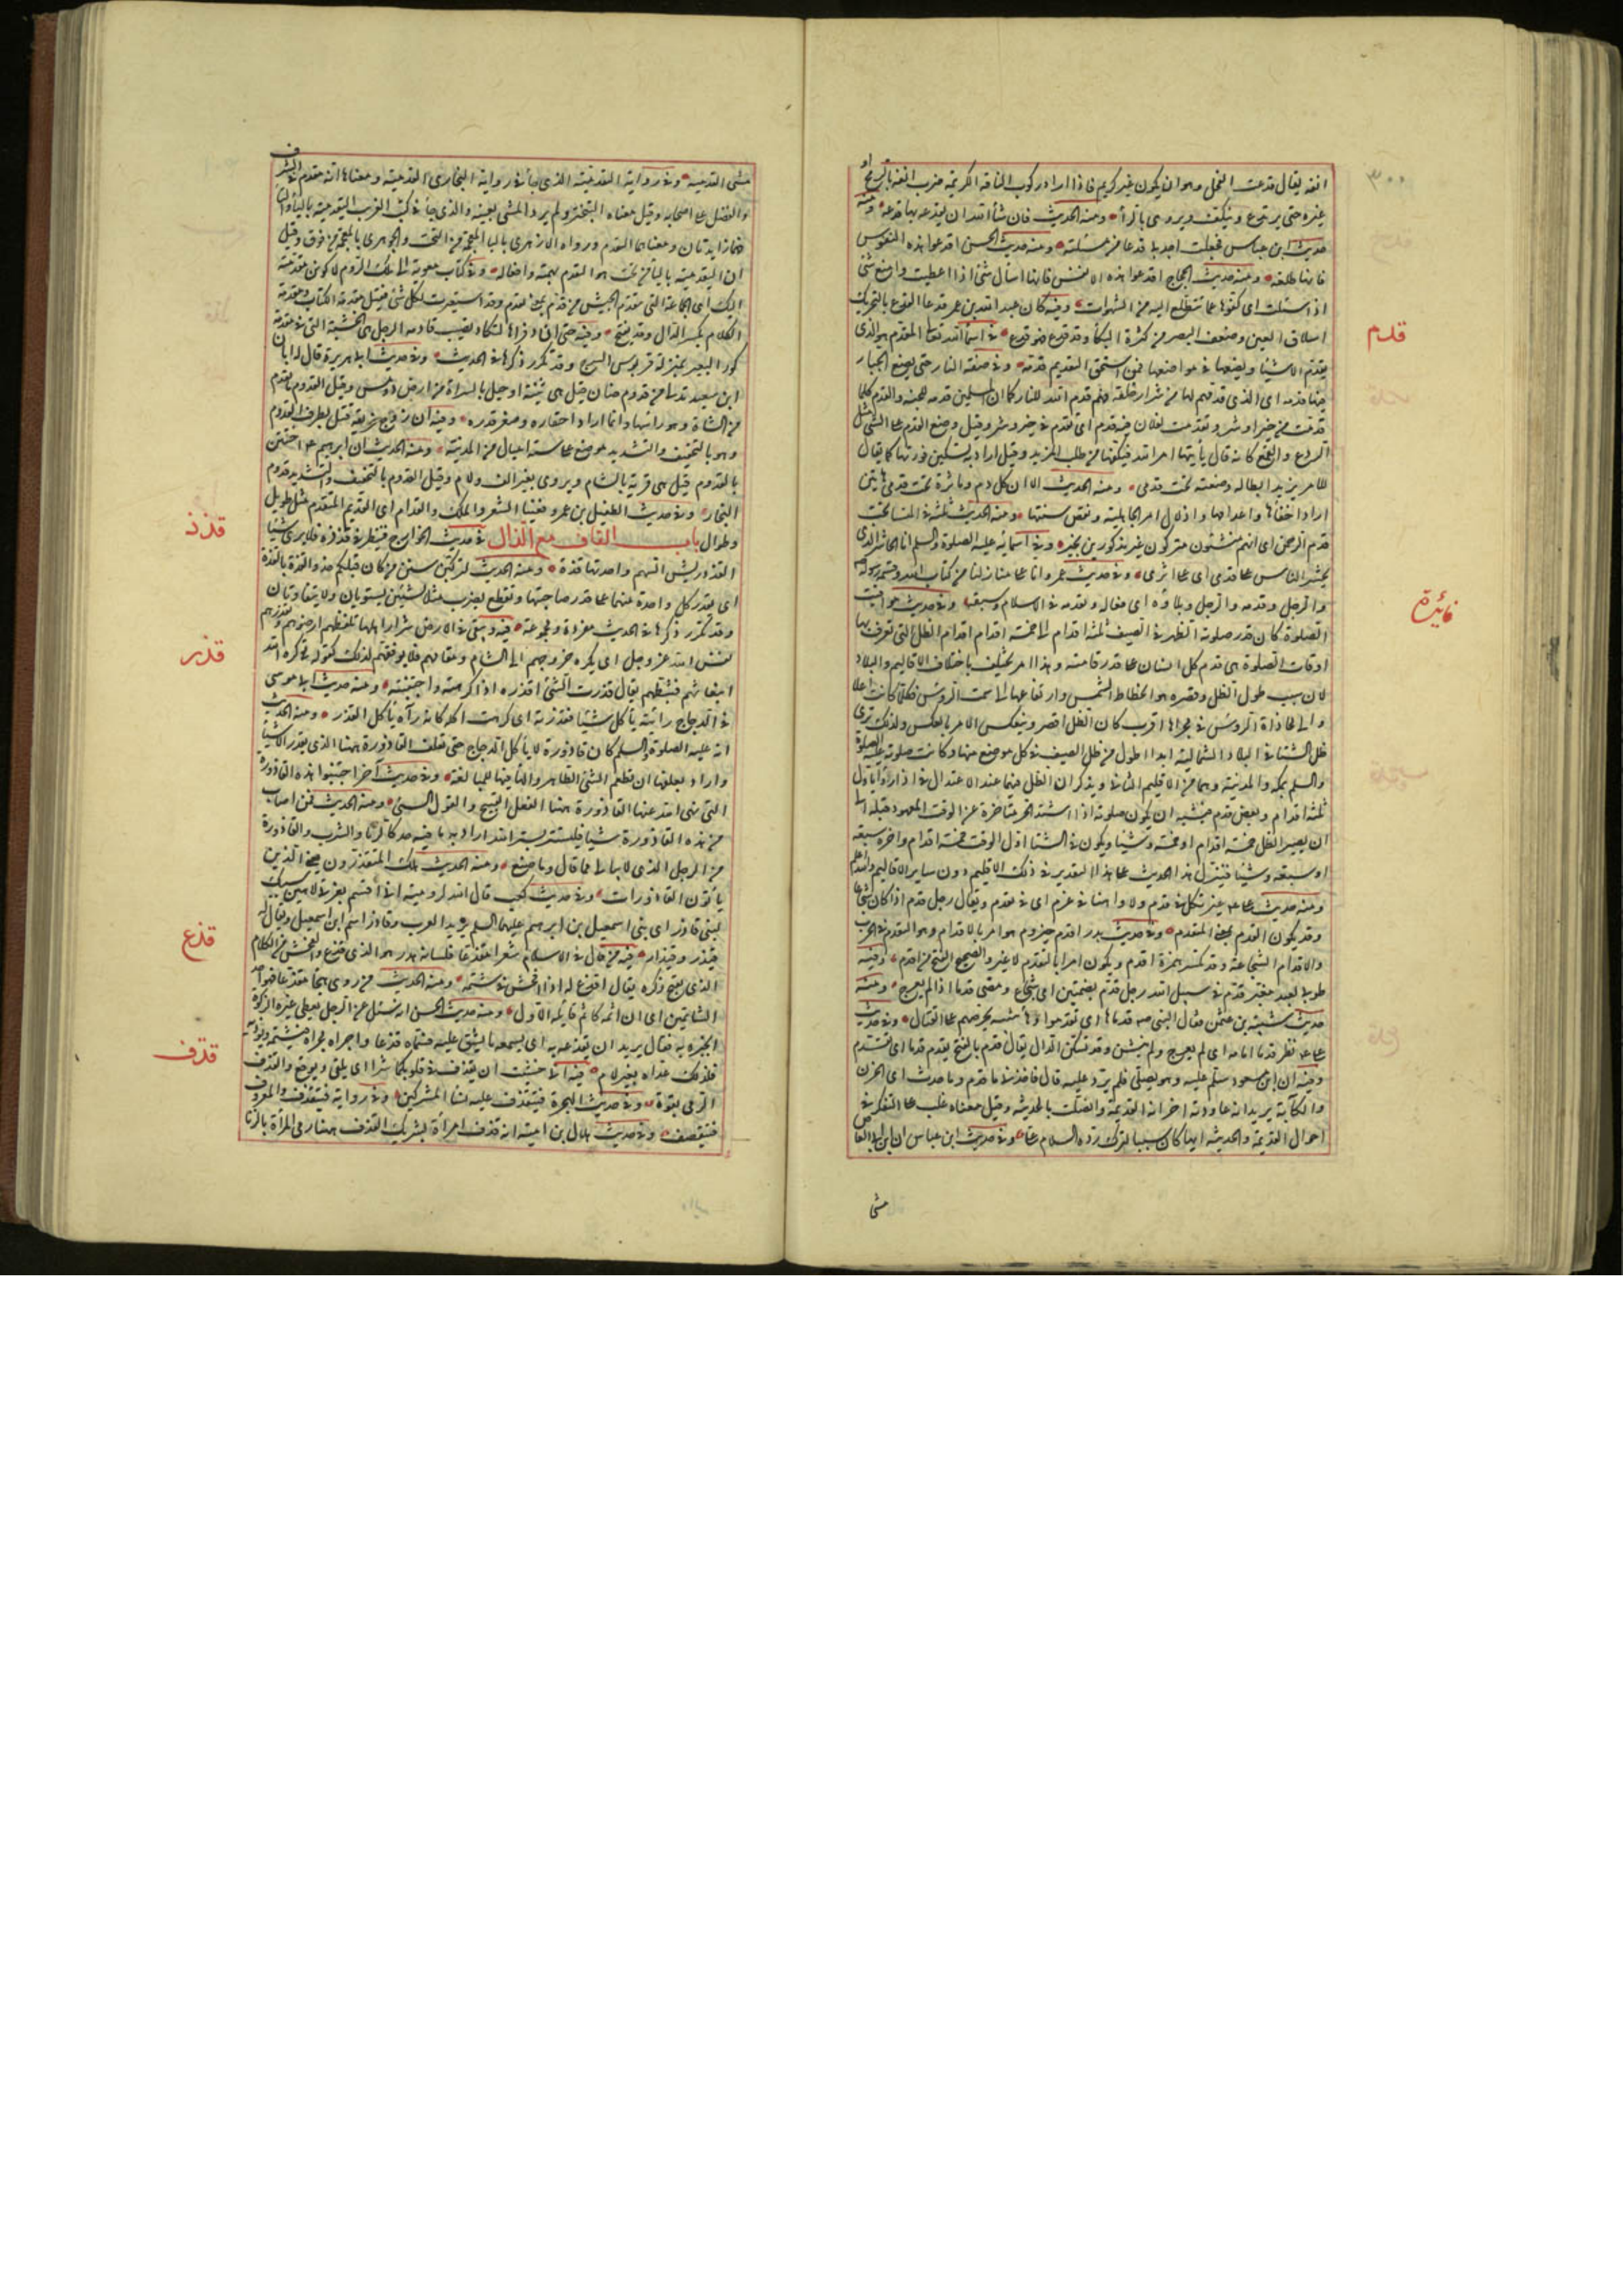 ٣٠٠
انفه يقال قدعت الفحل وهو ان يكون غير كريم فاذا اراد ركوب الناقة الكريمة ضرب انفه بالرمح او
غيره حتى يرتدع وينكف ويروى بالراء ومنه الحديث فان شاء الله ان يقدعه بها قدعه ومنه
حديث ابن عباس فجعلت اجد بي قدعا من مسئلته ومنه حديث الحسن اقدعوا هذه النفوس
فانها طلعة ومنه حديث الحجاج اقدعوا هذه الانفس فانها اسأل شئ اذا اعطيت وامنع شئ
اذا سئلت اى كفوها عما تتطلع اليه من الشهوات وفيه كان عبد الله بن عمر قدعا القدع بالتحريك
انسلاق العين وضعف البصر من كثرة البكاء وقد قدع فهو قدع فى اسماء الله تعالى المقدم هو الذى
قدم
يقدم الاشياء ويضعها فى مواضعها فمن استحق التقديم قدمه وفى صفة النار حتى يضع الجبار
فيها قدمه اى الذى قدمهم لها من شرار خلقه فهم قدم الله للنار كما ان المسلمين قدمه للجنة والقدم كلما
قدمت من خير او شر وتقدمت لفلان فيه قدم اى تقدم فى خير وشر وقيل وضع القدم على الشئ مثل
الردع والقمع كانه قال يأتيها امر الله فيكفها من طلب المزيد وقيل اراد به تسكين فورتها كما يقال
للامر يريد ابطاله وضعته تحت قدمى ومنه الحديث الا ان كل دم ومأثرة تحت قدمى هاتين
اراد اخفاها واعدامها واذلال امر الجاهلية ونقض سنتها ومنه الحديث ثلثة فى المنسا تحت
قدم الرحمن اى انهم منسيون متروكون غير مذكورين بخير وفى اسمائه عليه الصلوة والسلم انا الحاشر الذى
يحشر الناس على قدمى اى على اثرى وفى حديث عمر وانا على منازلنا من كتاب الله وقسمة رسوله
والرجل وقدمه والرجل وبلاؤه اى فعاله وتقدمه فى الاسلام وسبقه وفى حديث مواقيت
فائدة
الصلوة كان قدر صلوته الظهر فى الصيف ثلثة اقدام الى خمسة اقدام اقدام الظل التى تعرف بها
اوقات الصلوة هى قدم كل انسان على قدر قامته وهذا امر يختلف باختلاف الاقاليم والبلاد
لان سبب طول الظل وقصره هو انحطاط الشمس وارتفاعها الى سمت الرؤس فكلما كانت اعلا
والى محاذاة الرؤس فى مجراها اقرب كان الظل اقصر وينعكس الامر بالعكس ولذلك ترى
ظل الشتاء فى البلاد الشمالية ابدا اطول من ظل الصيف فى كل موضع منها وكانت صلوته عليه الصلوة
والسلم بمكة والمدينة وهما من الاقليم الثانى ويذكر ان الظل فيهما عند الاعتدال فى اذار وايلول
ثلثة اقدام وبعض قدم فيشبه ان يكون صلوته اذا اشتد الحر متأخرة عن الوقت المعهود قبله الى
ان يصير الظل خمسة اقدام او خمسة وشيئا ويكون فى الشتاء اول الوقت خمسة اقدام واخره سبعة
او سبعة وشيئا فينزل هذا الحديث على هذا التقدير فى ذلك الاقليم دون ساير الاقاليم والله اعلم
ومنه حديث على غير نكل فى قدم ولا واهنا فى عزم اى فى تقدم ويقال رجل قدم اذا كان شجاعا
وقد يكون القدم بمعنى المتقدم وفى حديث بدر اقدم حيزوم هو امر بالاقدام وهو التقدم فى الحرب
والاقدام الشجاعة وقد تكسر همزة اقدم ويكون امرا بالتقدم لا غير والصحيح الفتح من اقدم وفيه
طوبى لعبد مغبر قدم فى سبيل الله رجل قدم بضمتين اى شجاع ومضى قدما اذا لم يعرج ومنه
حديث شيبة بن عثمن فقال النبى صه قدما ها اى تقدموا وها تنبيه يحرضهم على القتال وفى حديث
على نظر قدما امامه اى لم يعرج ولم ينثن وقد تسكن الدال يقال قدم بالفتح يقدم قدما اى تقدم
وفيه ان ابن مسعود سلم عليه وهو يصلى فلم يرد عليه قال فاخذنى ما قدم وما حدث اى الحزن
والكآبة يريد انه عاودته احزانه القديمة واتصلت بالحديثة وقيل معناه غلب على التفكر فى
احوال القديمة والحديثة ايها كان سببا لترك رده السلام على وفى حديث ابن عباس ان ابن ابى العاص
مشى
مشى القدمية وفى رواية اليقدمية الذى جاء فى رواية البخارى القدمية ومعناها انه تقدم فى الشرف
والفضل على اصحابه وقيل معناه التبختر ولم يرد المشى بعينه والذى جاء فى كتب الغريب اليقدمية بالياء والتاء
فهما زايدتان ومعناهما التقدم ورواه الازهرى بالياء المعجمة من تحت والجوهرى بالمعجمة من فوق وقيل
ان اليقدمية بالياء من تحت هو التقدم بهمته وافعاله وفى كتاب معوية الى ملك الروم لاكونن مقدمته
اليك اى الجماعة التى تتقدم الجيش من قدم بمعنى تقدم وقد استعيرت لكل شئ فقيل مقدمة الكتاب ومقدمة
الكلام بكسر الدال وقد يفتح وفيه حتى ان ذفراها لتكاد يصيب قادمة الرحل هى الخشبة التى فى مقدمة
كور البعير بمنزلة قربوس السرج وقد تكرر ذكرها فى الحديث وفى حديث ابى هريرة قال له ابان
ابن سعيد تدلى من قدوم ضان قيل هى ثنية او جبل بالسراة من ارض دوس وقيل القدوم ما تقدم
من الشاة وهو راسها وانما اراد احتقاره وصغر قدره وفيه ان زوج فريعة قتل بطرف القدوم
وهو بالتخفيف والتشديد موضع على ستة اميال من المدينة ومنه الحديث ان ابرهيم عم اختتن
بالقدوم قيل هى قرية بالشام ويروى بغير الف ولام وقيل القدوم بالتخفيف والتشديد قدوم
النجار وفى حديث الطفيل بن عمرو ففينا الشعر والملك القدام اى القديم المتقدم مثل طويل
وطوال باب القاف مع الذال فى حديث الخوارج فينظر فى قذذه فلا يرى شيئا
قذذ
القذذ ريش السهم واحدتها قذة ومنه الحديث لتركبن سنن من كان قبلكم حذو القذة بالقذة
اى تقدر كل واحدة منهما على قدر صاحبتها وتقطع يضرب مثلا لشيئين يستويان ولا يتفاوتان
وقد تكرر ذكرها فى الحديث مفردة ومجموعة فيه ويبقى فى الارض شرار اهلها تلفظهم ارضوهم وتقذرهم
قذر
نفس الله عز وجل اى يكره خروجهم الى الشام ومقامهم فلا يوفقهم لذلك كقوله تع كره الله
انبعاثهم فثبطهم يقال قذرت الشئ اقذره اذا كرهته واجتنبته ومنه حديث ابى موسى
فى الدجاج رايته يأكل شيئا فقذرته اى كرهت اكله كانه رآه يأكل القذر ومنه الحديث
انه عليه الصلوة والسلم كان قاذورة لا يأكل الدجاج حتى تعلف القاذورة ههنا الذى يقذر الاشياء
واراد بعلفها ان تطعم الشئ الطاهر والهاء فيها للمبالغة وفى حديث آخر اجتنبوا هذه القاذورة
التى نهى الله عنها القاذورة ههنا الفعل القبيح والقول السئ ومنه الحديث فمن اصاب
من هذه القاذورة شيئا فليستتر بستر الله اراد به ما فيه حد كالزنا والشرب والقاذورة
من الرجل الذى لا يبالى ما قال وما صنع ومنه الحديث هلك المتقذرون يعنى الذين
يأتون القاذورات وفى حديث كعب قال الله لرومية انى اقسم بعزتى لاهبن سبيك
لبنى قاذر اى بنى اسمعيل بن ابرهيم عليهما السلم يريد العرب وقاذر اسم ابن اسمعيل ويقال له
قيذر وقيذار فيه من قال فى الاسلام شعرا مقذعا فلسانه هدر هو الذى فيه قذع والفحش من الكلام
قذع
الذى يقبح ذكره يقال اقذع له اذا افحش فى شتمه ومنه الحديث من روى هجاء مقذعا فهو احد
الشاتمين اى ان اثمه كاثم قايله الاول ومنه حديث الحسن انه سئل عن الرجل يعطى غيره الزكوة
ايخبره به فقال يريد ان يقذعه به اى يسمعه ما يشق عليه فسماه قذعا واجراه مجرى من يشتمه ويؤذيه
فلذلك عداه بغير لام فيه انى خشيت ان يقذف فى قلوبكما شرا اى يلقى ويوقع والقذف
قذف
الرمى بقوة وفى حديث الهجرة فيتقذف عليه نساء المشركين وفى رواية فيتقذف والمعروف
فيتقصف وفى حديث هلال بن امية انه قذف امرأته بشريك القذف ههنا رمى المرأة بالزنا